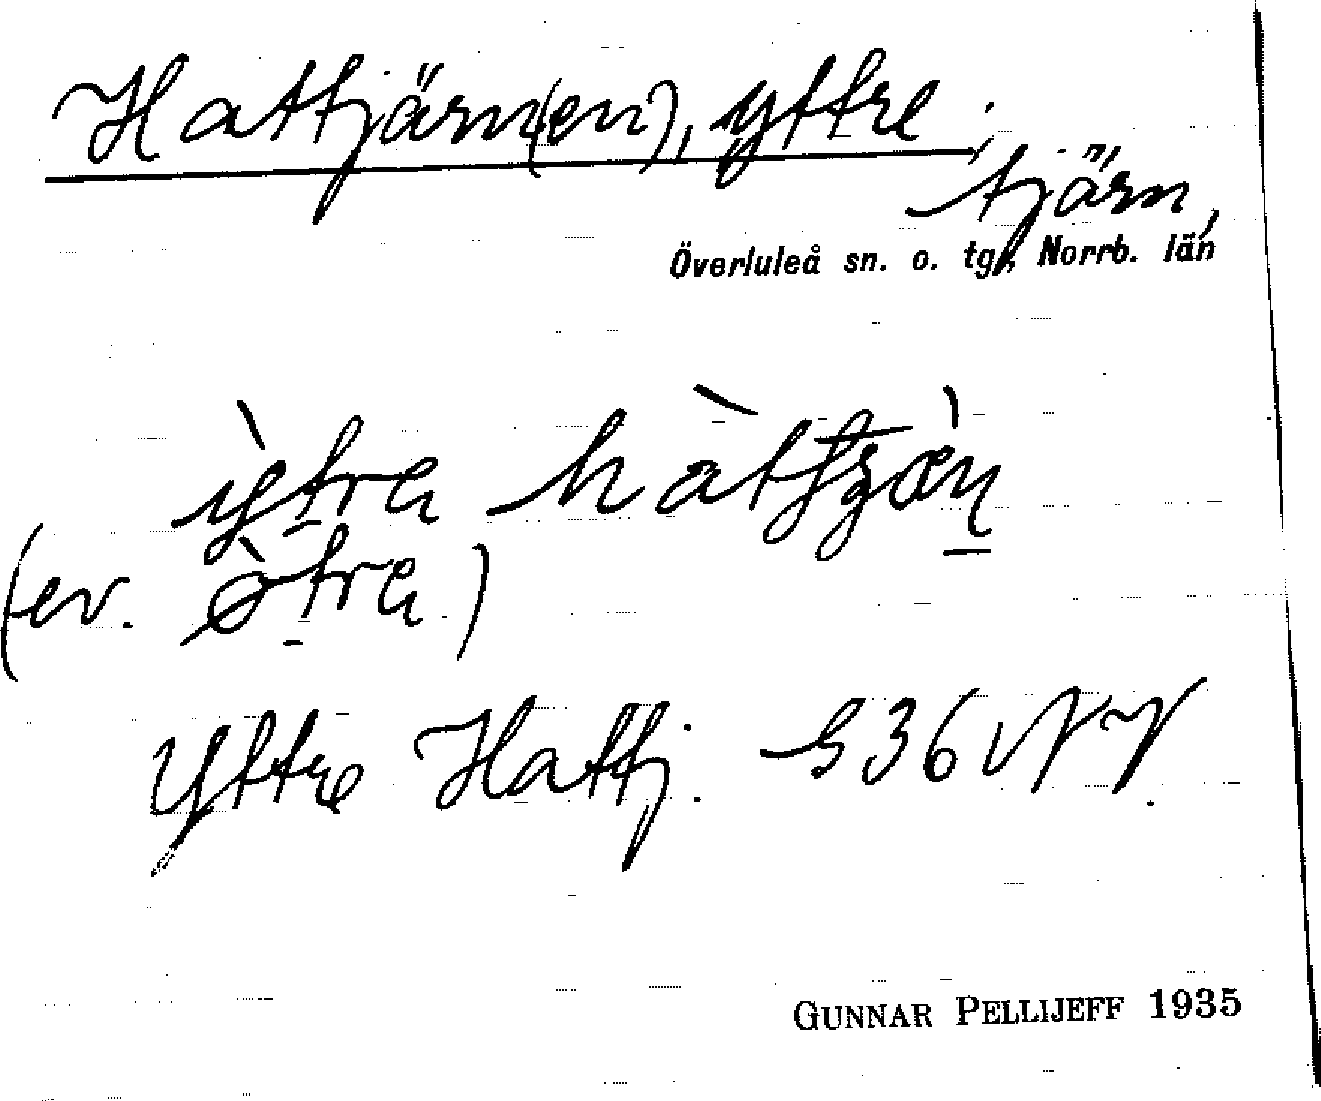 Hattjärn(en), yttre.
tjärn,
Överluleå sn. o. tg., Norrb. län
ỳtra hàttjæ̀n
(ev. ø̀tra)
Yttre Hattj. S36NV.
GUNNAR PELLIJEFF 1935